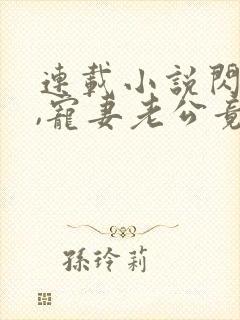 連載小說閃
,寵妻老公竟
孫玲莉